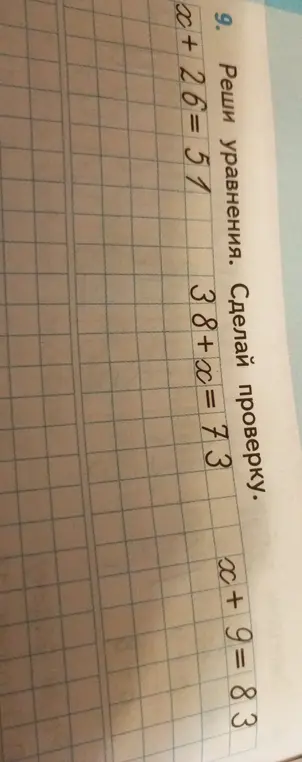 9. Реши уравнения. Сделай проверку.
x + 26 = 51 38 + x = 73 x + 9 = 83